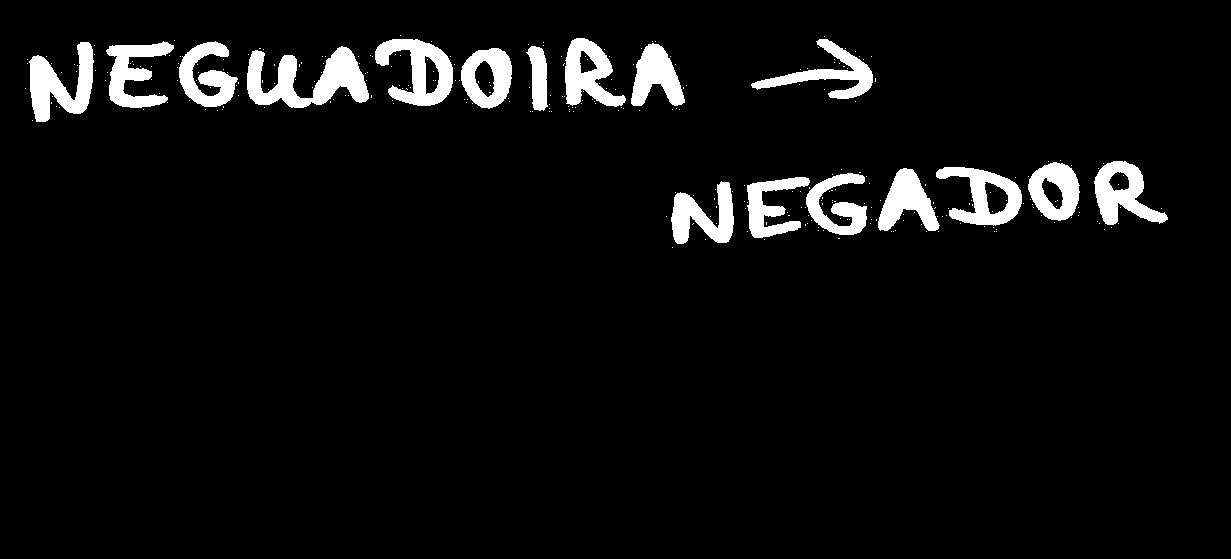 NEGUADOIRA →
NEGADOR